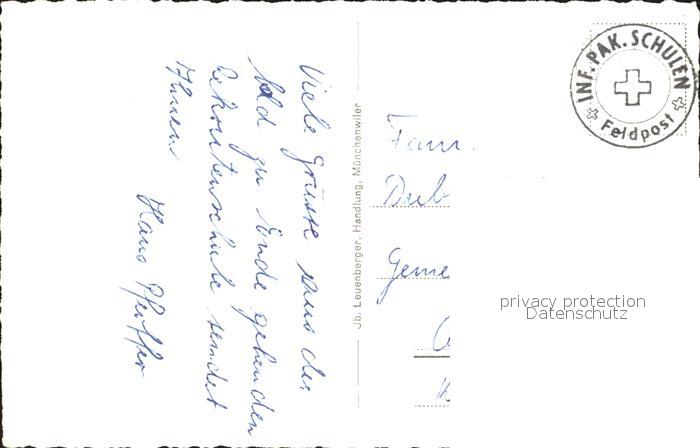 Viele Grüsse aus der
bald zu Ende gehenden
Rekrutenschule sendet
Ihnen
Hans Pfeiffer
Jb. Leuenberger, Handlung, Münchenwiler
INF. PAK. SCHULEN
Feldpost
Fam.
Dub
Geme
privacy protection
Datenschutz